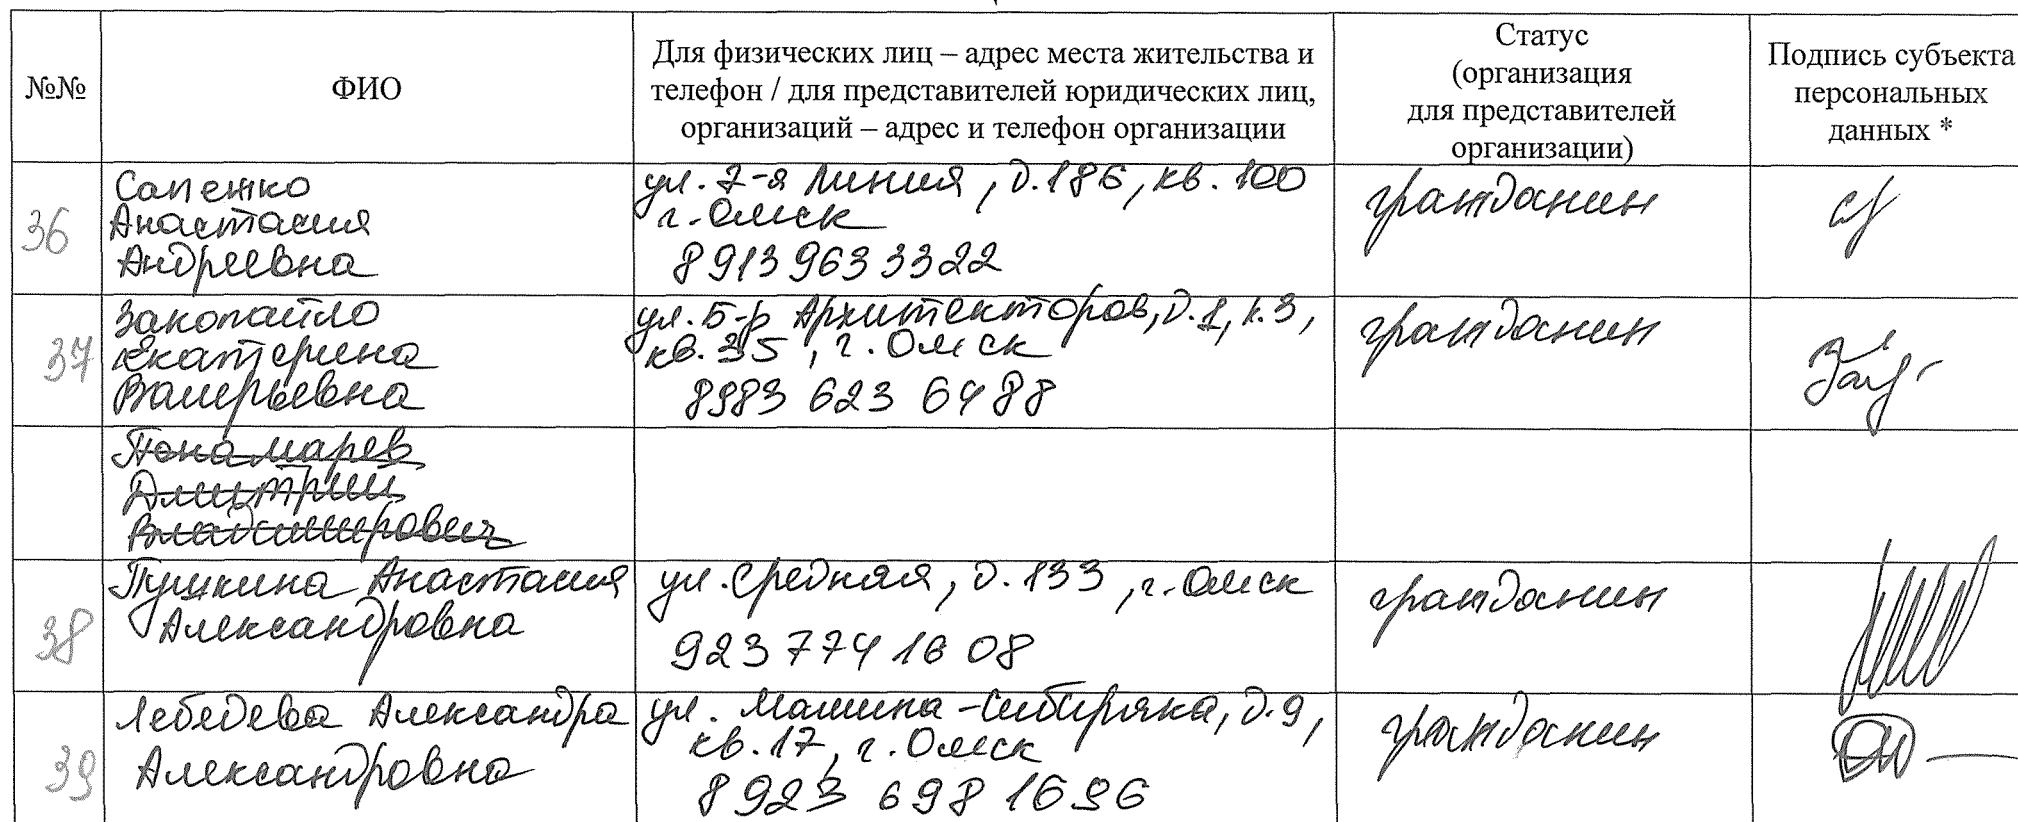 №№
ФИО
Для физических лиц – адрес места жительства и
телефон / для представителей юридических лиц,
организаций – адрес и телефон организации
Статус
(организация
для представителей
организации)
Подпись субъекта
персональных
данных *
36
Сапенко
Анастасия
Андреевна
ул. 7-я Линия, д. 186, кв. 100
г. Омск
8 913 963 3322
гражданин
37
Закопайло
Екатерина
Валерьевна
ул. Б-р Архитекторов, д. 1, к. 3,
кв. 35, г. Омск
8983 623 6488
гражданин
Пономарев
Дмитрий
Владимирович
38
Пушкина Анастасия
Александровна
ул. Средняя, д. 133, г. Омск
923 774 16 08
гражданин
39
Лебедева Александра
Александровна
ул. Мамина-Сибиряка, д. 9,
кв. 17, г. Омск
8 923 698 1696
гражданин